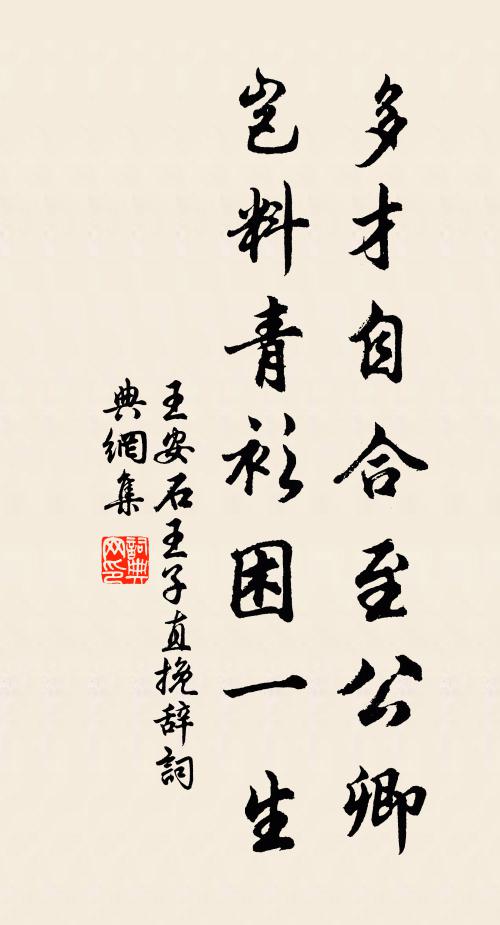 多才自合至公卿
岂料青衫困一生
王安石王子直挽辞詞
典網集
詞典
网印